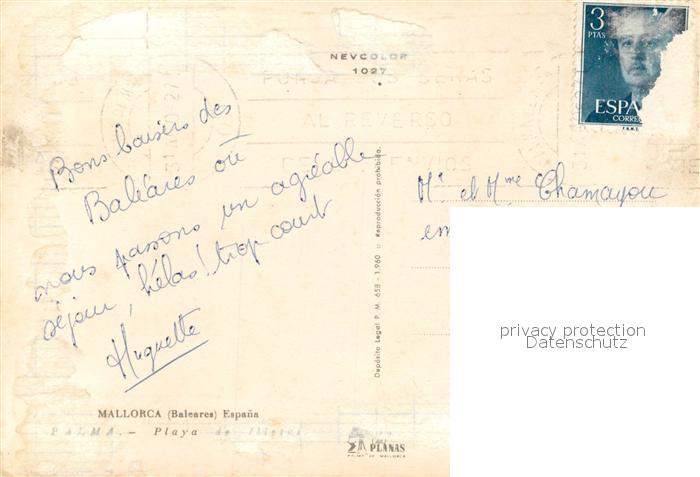 NEVCOLOR
1027
3
PTAS
ESPA
CORRE
F.N.M.T.
PONGA SUS SEÑAS
AL REVERSO
DE ENVIOS
Bons baisers des
Baléares où
nous passons un agréable
séjour, hélas! trop court
Huguette
Mr et Mme Chamayou
em
Depósito Legal P. M. 658 - 1.960 :: Reproducción prohibida.
privacy protection
Datenschutz
MALLORCA (Baleares) España
PALMA.- Playa de Illetas
PLANAS
PALMA DE MALLORCA